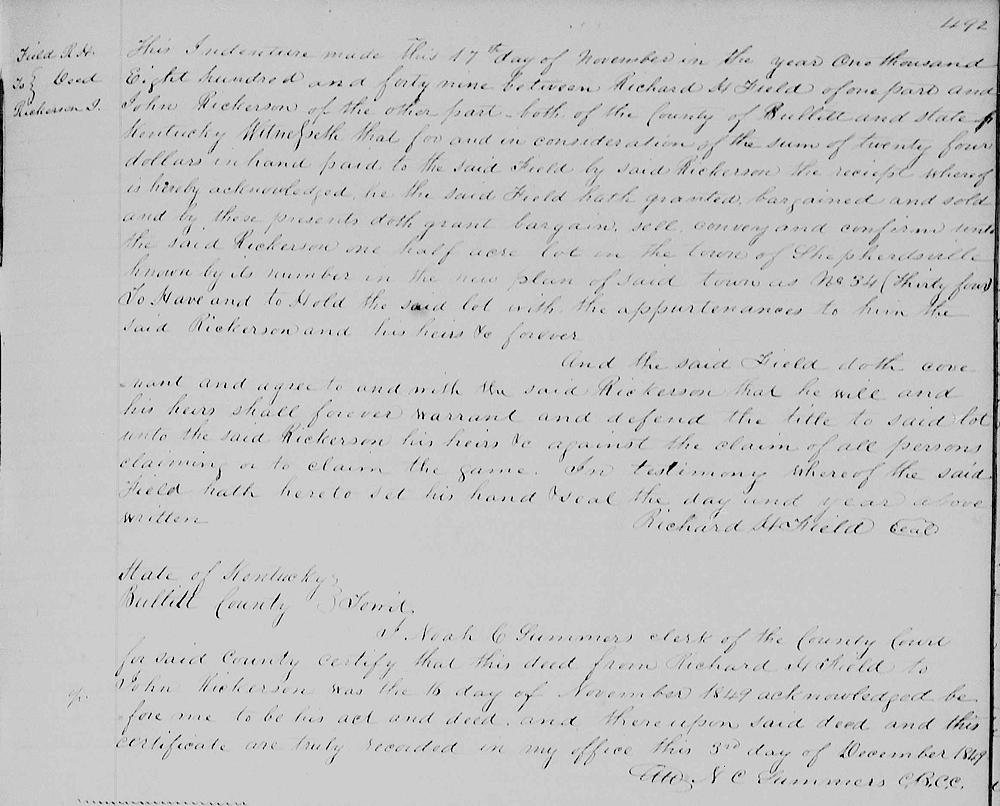 492
Field R. H.
To } Deed
Rickerson J.
This Indenture made this 17th day of November in the year One thousand
Eight hundred and forty nine between Richard H Field of one part and
John Rickerson of the other part - both of the County of Bullitt and state of
Kentucky Witnesseth that for and in consideration of the sum of twenty four
dollars in hand paid to the said Field by said Rickerson the reciept whereof
is hereby acknowledged, he the said Field hath granted, bargained and sold
and by these presents doth grant bargain, sell, convey and confirm unto
the said Rickerson one half acre lot in the town of Shepherdsville
known by its number in the new plan of said town as No 34 (Thirty four)
To Have and to Hold the said lot with the appurtenances to him the
said Rickerson and his heirs &c forever
And the said Field doth cove
-nant and agree to and with the said Rickerson that he will and
his heirs shall forever warrant and defend the title to said lot
unto the said Rickerson his heirs &c against the claim of all persons
claiming or to claim the same. In testimony whereof the said
Field hath hereto set his hand & seal the day and year above
written
Richard H Field Seal
State of Kentucky }
Bullitt County } Towit.
I Noah C Summers clerk of the County Court
for said County certify that this deed from Richard H Field to
John Rickerson was the 16 day of November 1849 acknowledged be
-fore me to be his act and deed, and thereupon said deed and this
certificate are truly recorded in my office this 3rd day of December 1849
Atto, N C Summers C.B.C.C.